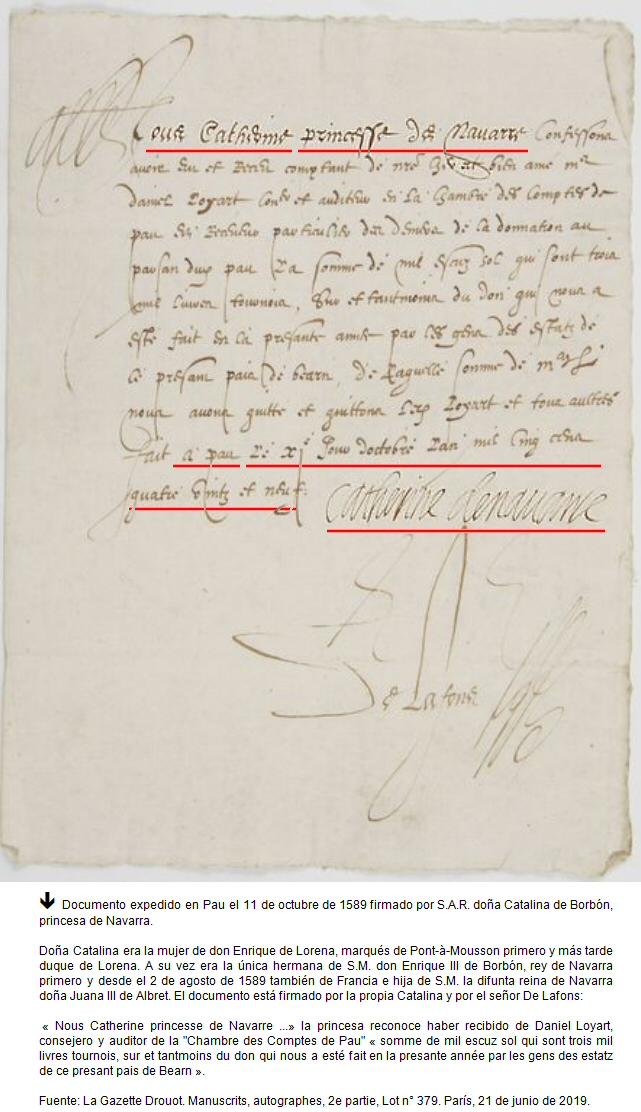 Nous Catherine princesse de Navarre Confessons
avoir eu et Receu comptant de nre bien ame mr
daniel Loyart et auditeur en La Chambre des Comptes de
pau et Receveur particulier des deniers de la donnation au
parsan du pau La somme de mil escuz sol qui sont trois
mil livres tournois, Sur et tantmoins du don qui nous a
esté fait en la presante annee par les gens des estatz de
ce presant pais de bearn, de Laquelle somme de
nous avons quitte et quittons Loyart et tous aultres
fait a pau Le xje Jour doctobre Lan mil cinq cens
quatre vintz et neuf.
Catherine de navarre
De Lafons
Documento expedido en Pau el 11 de octubre de 1589 firmado por S.A.R. doña Catalina de Borbón,
princesa de Navarra.
Doña Catalina era la mujer de don Enrique de Lorena, marqués de Pont-à-Mousson primero y más tarde
duque de Lorena. A su vez era la única hermana de S.M. don Enrique III de Borbón, rey de Navarra
primero y desde el 2 de agosto de 1589 también de Francia e hija de S.M. la difunta reina de Navarra
doña Juana III de Albret. El documento está firmado por la propia Catalina y por el señor De Lafons:
« Nous Catherine princesse de Navarre ...» la princesa reconoce haber recibido de Daniel Loyart,
consejero y auditor de la "Chambre des Comptes de Pau" « somme de mil escuz sol qui sont trois mil
livres tournois, sur et tantmoins du don qui nous a esté fait en la presante année par les gens des estatz
de ce presant pais de Bearn ».
Fuente: La Gazette Drouot. Manuscrits, autographes, 2e partie, Lot n° 379. París, 21 de junio de 2019.